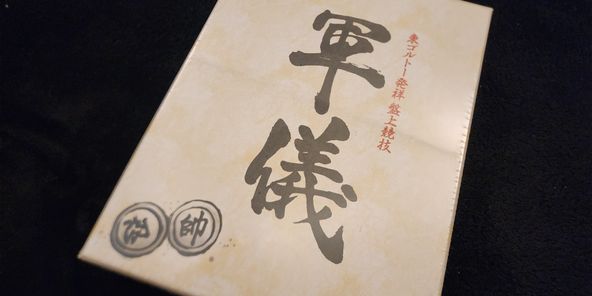 東ゴルトー発祥 盤上競技
軍儀